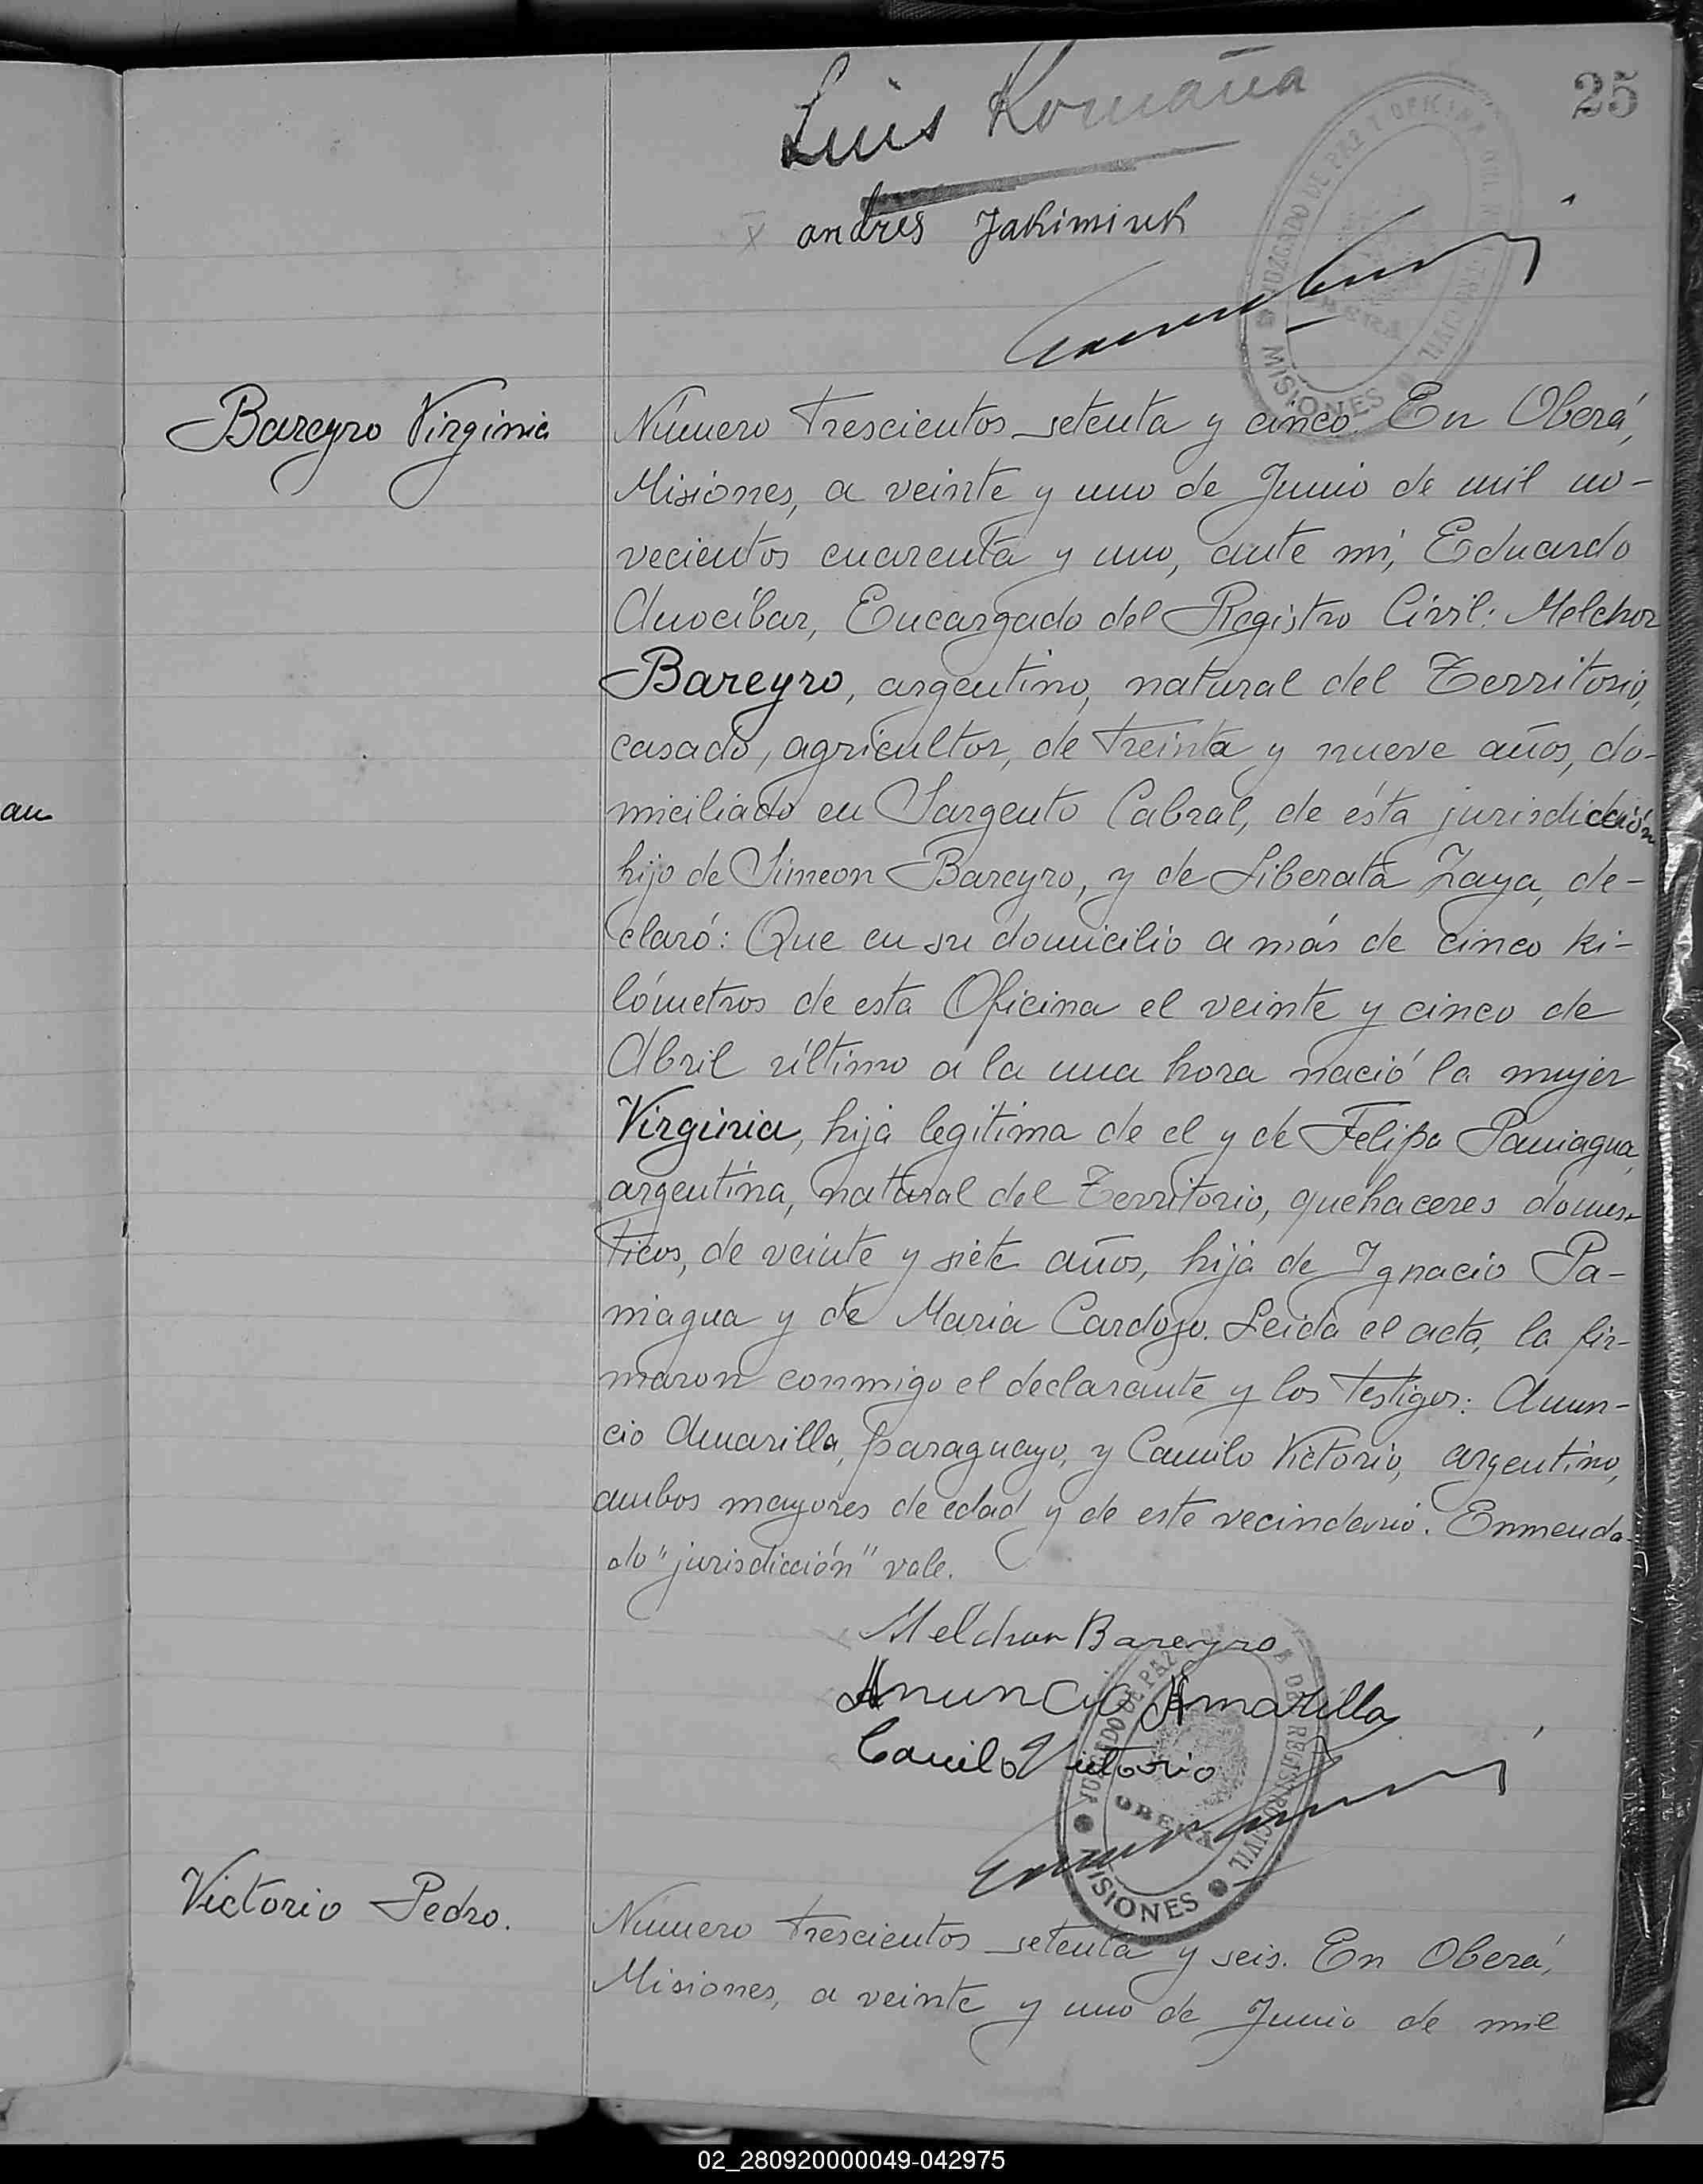 25
Luis Romaña
x andres Jakimiuk
JUZGADO DE PAZ Y OFICINA DEL REGISTRO CIVIL
OBERA
MISIONES
Bareyro Virginia
Número trescientos setenta y cinco. En Oberá,
Misiones, a veinte y uno de Junio de mil no-
vecientos cuarenta y uno, ante mi, Eduardo
Anocíbar, Encargado del Registro Civil: Melchor
Bareyro, argentino, natural del Territorio,
casado, agricultor, de treinta y nueve años, do-
miciliado en Sargento Cabral, de ésta jurisdicción
an
hijo de Simeon Bareyro, y de Liberata Zaya, de-
claró: Que en su domicilio a más de cinco ki-
lómetros de esta Oficina el veinte y cinco de
Abril último a la una hora nació la mujer
Virginia, hija legitima de el y de Felipa Paniagua,
argentina, natural del Territorio, quehaceres domés-
ticos, de veinte y siete años, hija de Ignacio Pa-
niagua y de Maria Cardozo. Leida el acta, la fir-
maron conmigo el declarante y los testigos: Anun-
cio Amarilla, paraguayo, y Camilo Victorio, argentino,
ambos mayores de edad y de este vecindario. Enmenda-
do "jurisdicción" vale.
Melchor Bareyro
Anuncio Amarilla
Camilo Victorio
JUZGADO DE PAZ Y OFICINA DEL REGISTRO CIVIL
OBERA
MISIONES
Victorio Pedro.
Número trescientos setenta y seis. En Oberá,
Misiones, a veinte y uno de Junio de mil
02_280920000049-042975